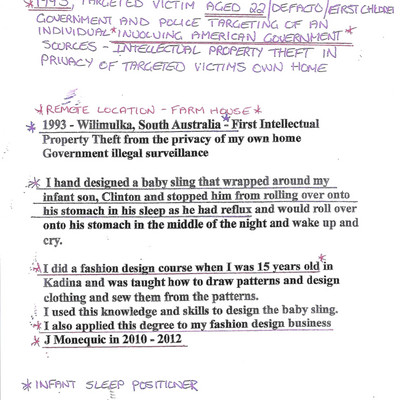 *1993, TARGETED VICTIM AGED 22/DEFACTO/FIRST CHILDREN
GOVERNMENT AND POLICE TARGETING OF AN
INDIVIDUAL *INVOLVING AMERICAN GOVERNMENT*
SOURCES - INTELLECTUAL PROPERTY THEFT IN
PRIVACY OF TARGETED VICTIMS OWN HOME
*REMOTE LOCATION - FARM HOUSE*
*1993 - Wilimulka, South Australia - First Intellectual
Property Theft from the privacy of my own home
Government illegal surveillance
*I hand designed a baby sling that wrapped around my
infant son, Clinton and stopped him from rolling over onto
his stomach in his sleep as he had reflux and would roll over
onto his stomach in the middle of the night and wake up and
cry.
*I did a fashion design course when I was 15 years old* in
Kadina and was taught how to draw patterns and design
clothing and sew them from the patterns.
I used this knowledge and skills to design the baby sling.
*I also applied this degree to my fashion design business
*J Monequic in 2010 - 2012
*INFANT SLEEP POSITIONER